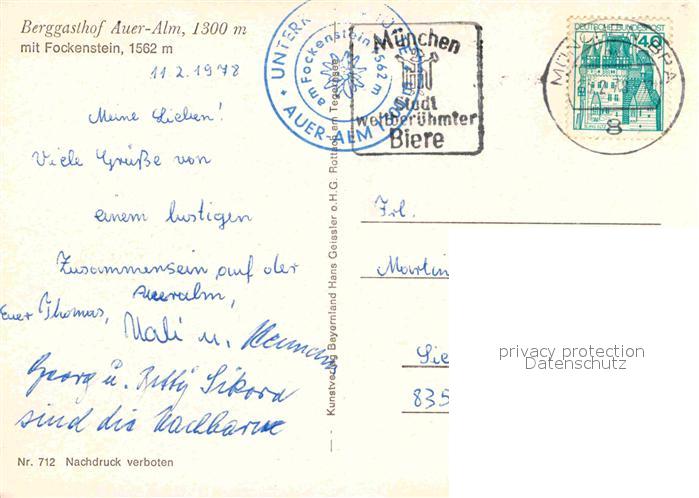 Berggasthof Auer-Alm, 1300 m
mit Fockenstein, 1562 m
11 2. 1978
Meine Lieben!
Viele Grüße von
einem lustigen
Zusammensein auf der
Aueralm,
Euer Thomas,
Mali u.
Georg u. Betty Sikora
sind die Nachbarn
Nr. 712 Nachdruck verboten
Kunstverlag Bayernland Hans Geissler o.H.G. Rottach am Tegernsee
am Fockenstein 1562 m
AUER-ALM
München
Stadt
weltberühmter
Biere
DEUTSCHE BUNDESPOST
40
8
Frl.
Martin
Sie
835
privacy protection
Datenschutz